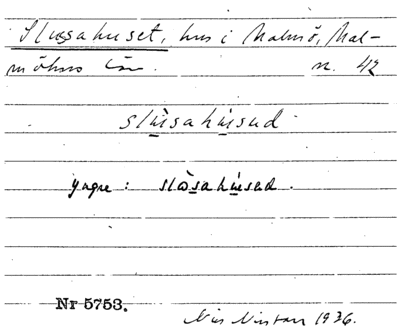 Slussahuset, hus i Malmö, Mal-
möhus län. n. 42
slu̲sahu̲sad
yngre: slòsahu̲sad.
Nr 5753.
Nils 1936.